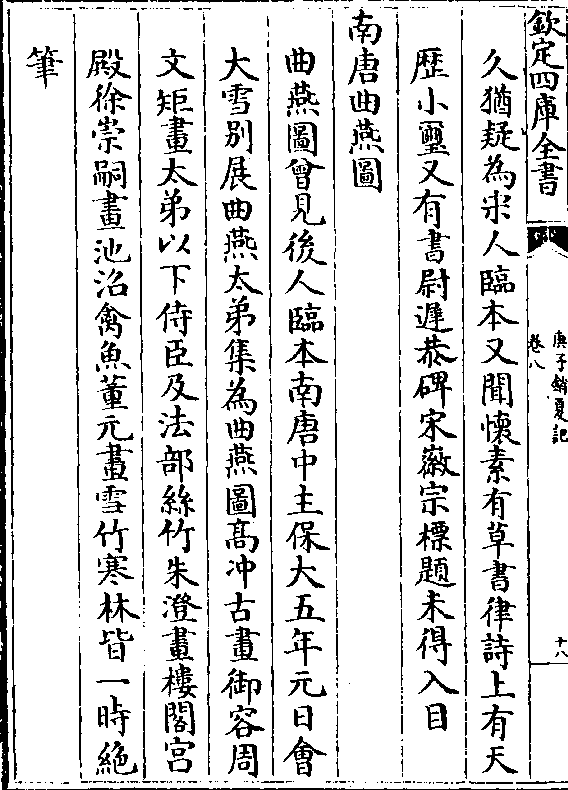 欽定四庫全書
庚子銷夏記
卷八
十八
久猶疑為宋人臨本又聞懷素有草書律詩上有天
歴小璽又有書尉遲恭碑宋徽宗標題未得入目
南唐曲燕圖
曲燕圖曾見後人臨本南唐中主保大五年元日會
大雪别展曲燕太弟集為曲燕圖高冲古畫御容周
文矩畫太弟以下侍臣及法部絲竹朱澄畫樓閣宫
殿徐崇嗣畫池沼禽魚董元畫雪竹寒林皆一時絶
筆